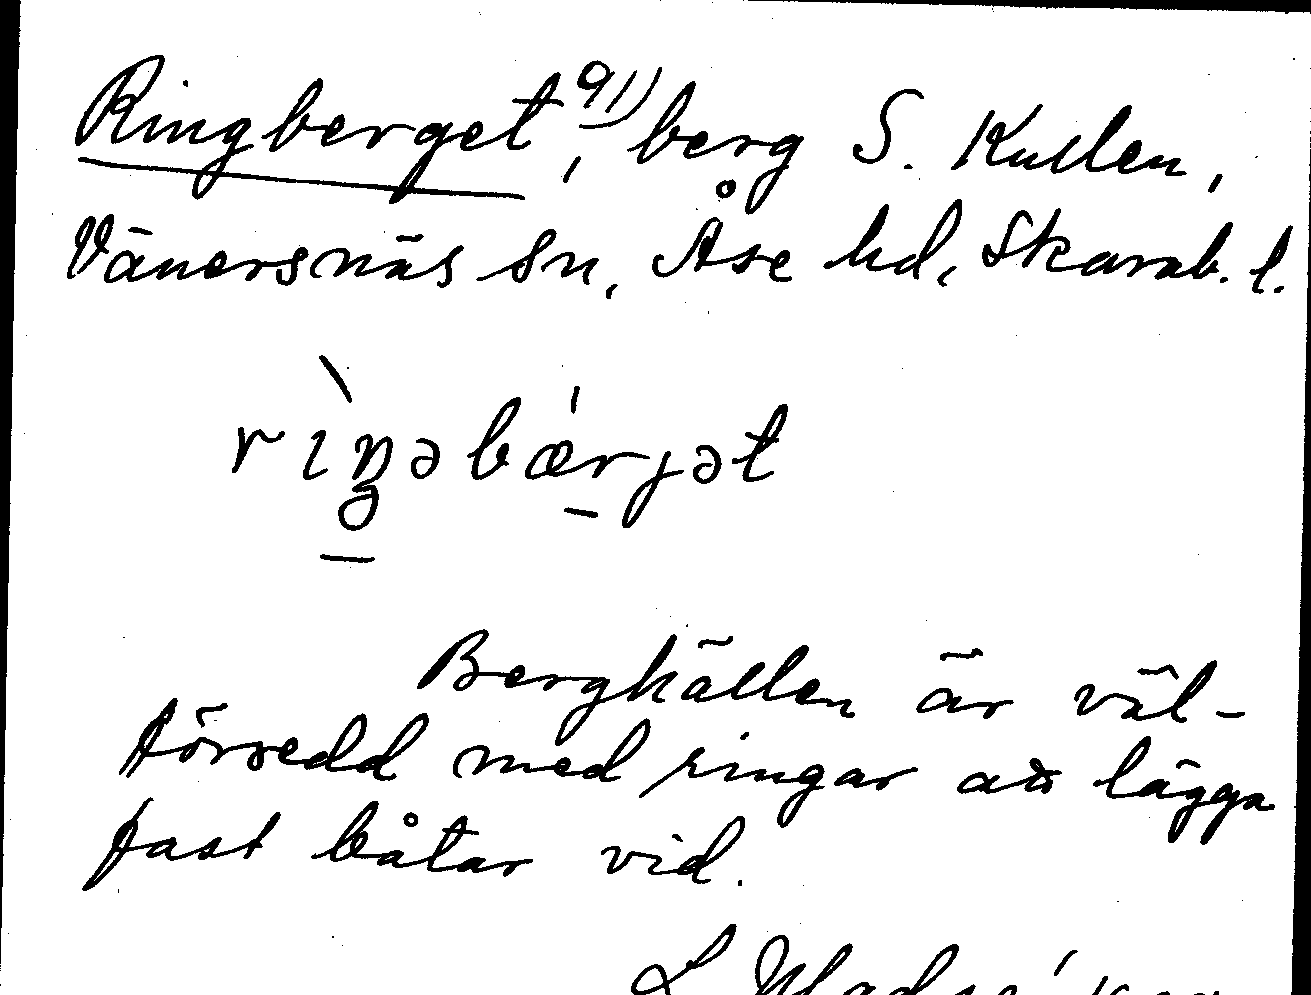 Ringberget, 91) berg S. Kullen,
Vänersnäs sn, Åse hd, Skarab. l.
rìŋəbǽrjət
Berghällen är väl-
försedd med ringar att lägga
fast båtar vid.